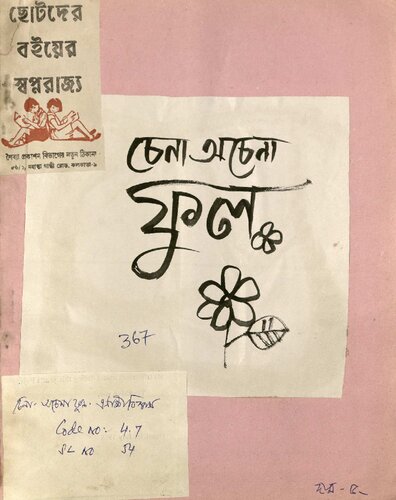 ছোটদের
বইয়ের
স্বপ্নরাজ্য
শৈব্যা প্রকাশন বিভাগের নতুন ঠিকানা
৮৬/১, মহাত্মা গান্ধী রোড, কলকাতা-৯
চেনা অচেনা
ফুল
367
চেনা-অচেনা ফুল-
Code no: 4.7
SL no 54